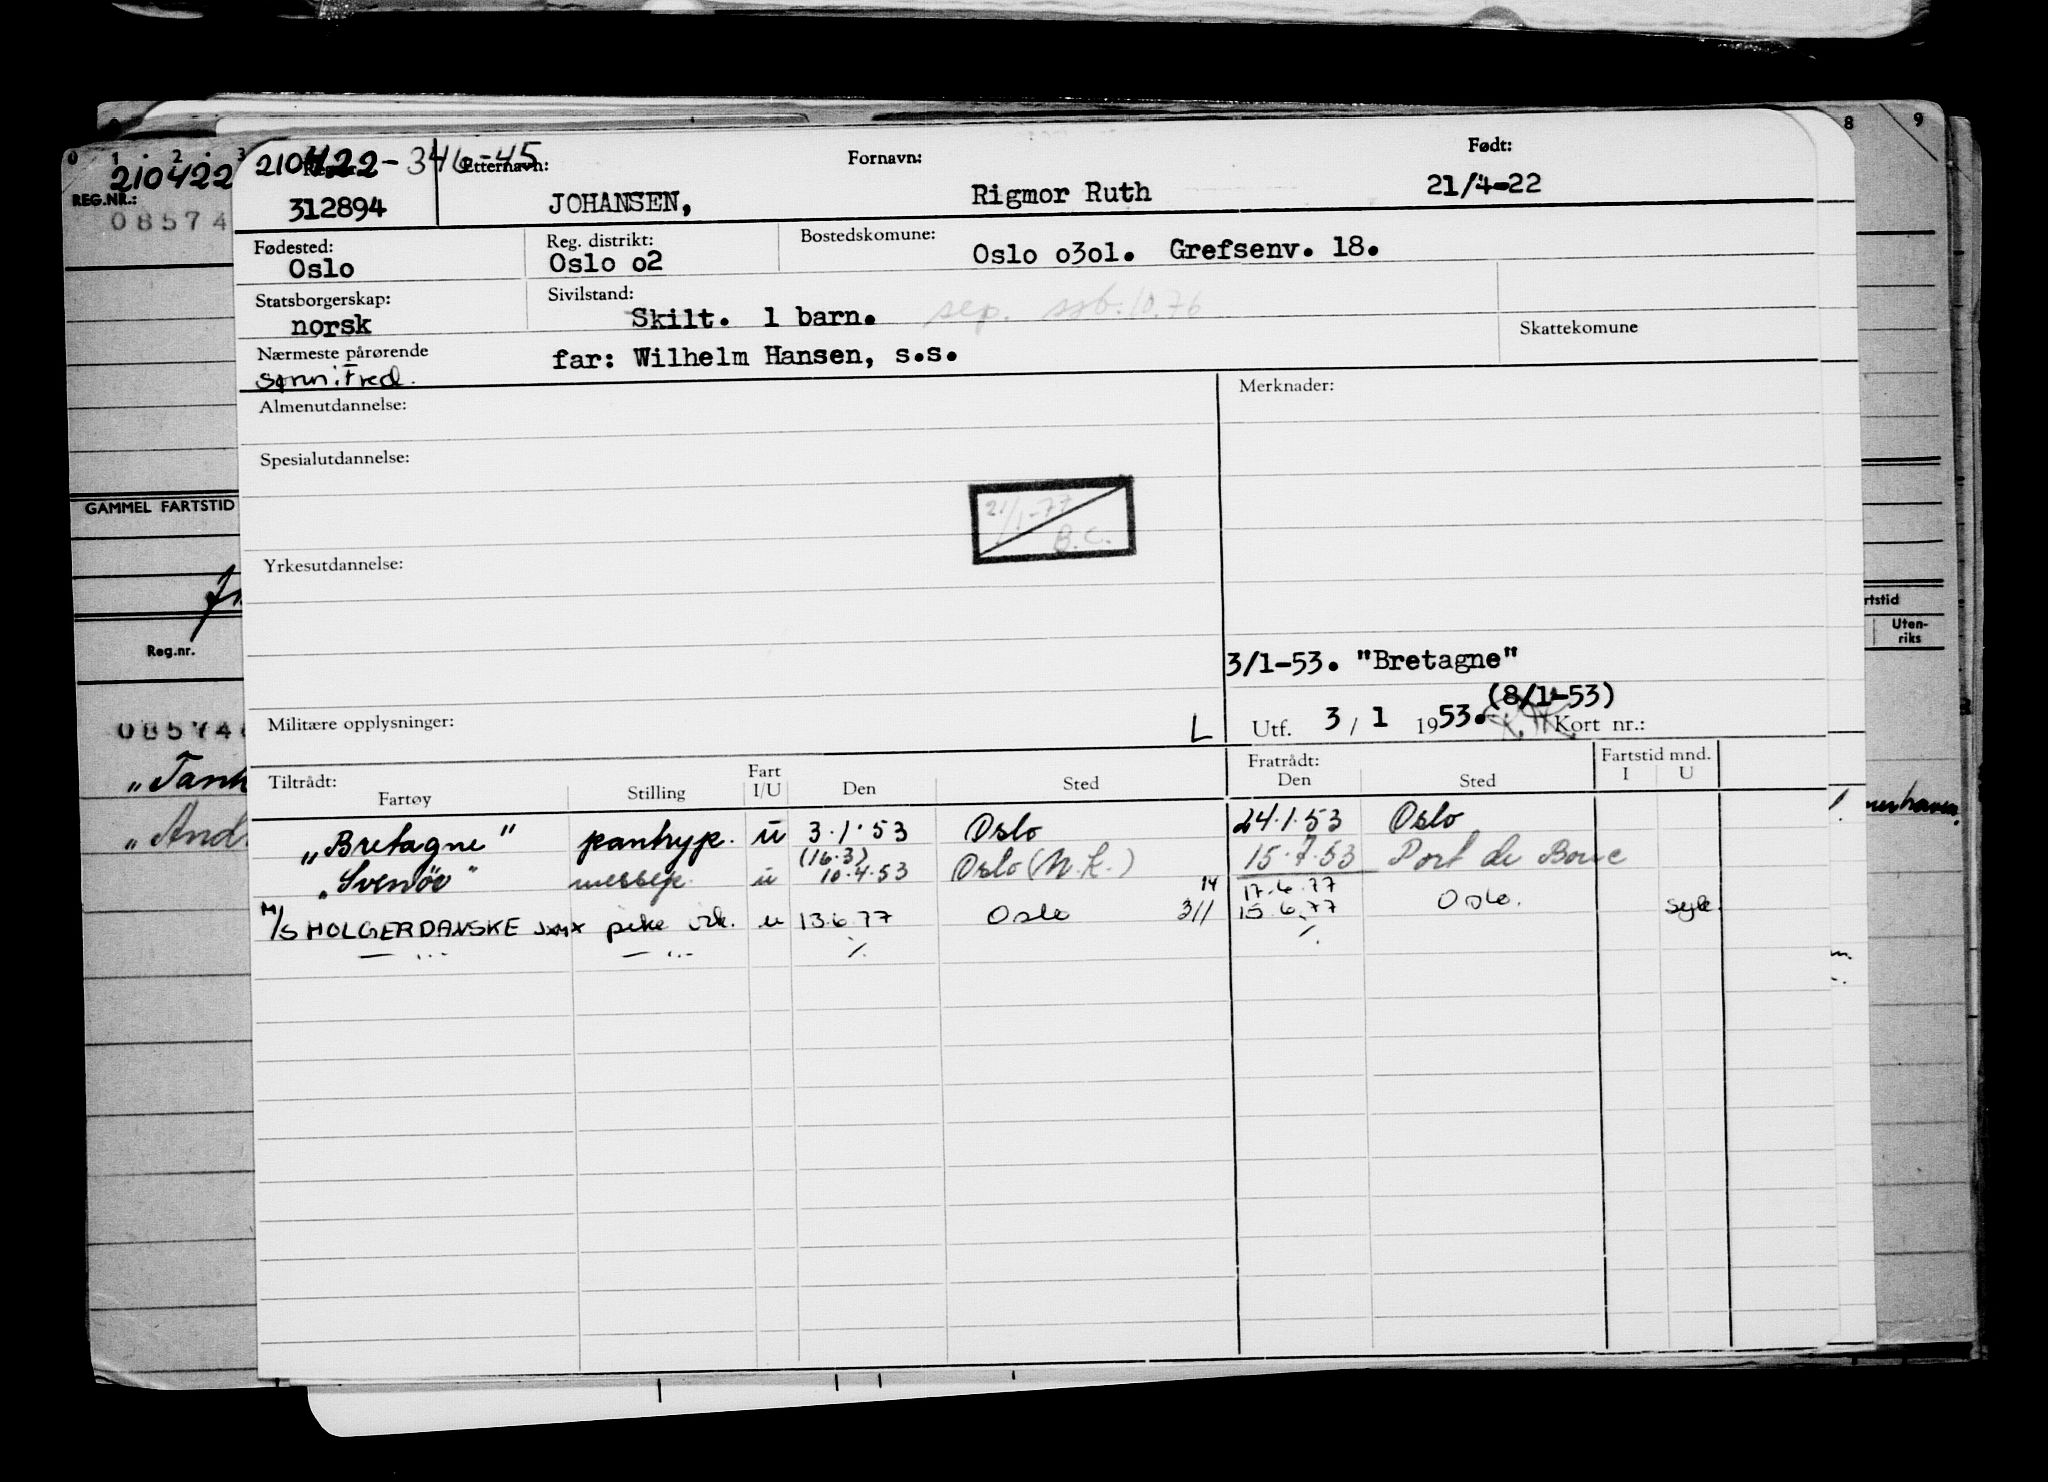 0 1 2 3
210422
REG.NR.:
08574
210422-346-45
312894
Etternavn:
JOHANSEN,
Fornavn:
Rigmor Ruth
Født:
21/4-22
8 9
Fødested:
Oslo
Reg. distrikt:
Oslo o2
Bostedskomune:
Oslo o3o1. Grefsenv. 18.
Statsborgerskap:
norsk
Sivilstand:
Skilt. 1 barn. sep.
Skattekomune
Nærmeste pårørende
far: Wilhelm Hansen, s.s.
Sønn: Fred.
Almenutdannelse:
Merknader:
Spesialutdannelse:
21/1-77
B.C.
GAMMEL FARTSTID
Yrkesutdannelse:
rtstid
Uten-
riks
Reg.nr.
3/1-53. "Bretagne"
(8/1-53)
Militære opplysninger:
L
Utf. 3 / 1 1953. Kort nr.:
Tiltrådt:
Fartøy
Stilling
Fart
I/U
Den
Sted
Fratrådt:
Den
Sted
Fartstid mnd.
I U
"Bretagne" pantryp. u 3.1.53 Oslo 24.1.53 Oslo
"Svenør" messep. u (16.3) 10.4.53 Oslo (N.K.) 15.7.53 Port de Bouc
14 17.6.77
M/S HOLGERDANSKE pike u 13.6.77 Oslo 311 15.6.77 Oslo.
— " — — " — ٪ ٪